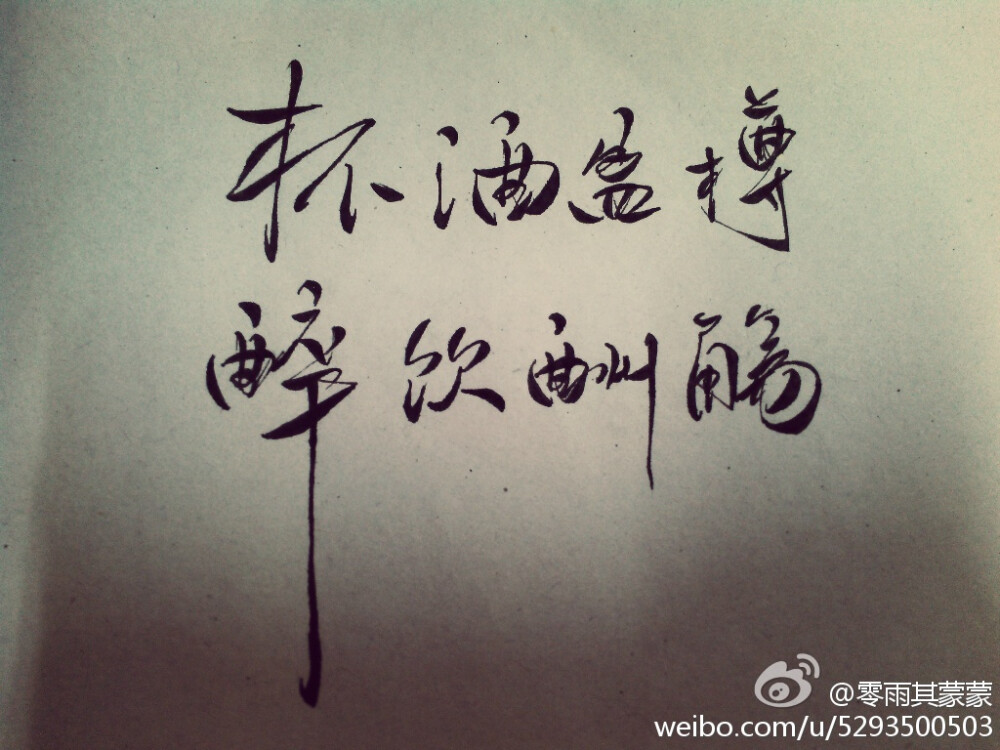 杯酒盈樽
醉饮酬觞
@零雨其蒙蒙
weibo.com/u/5293500503